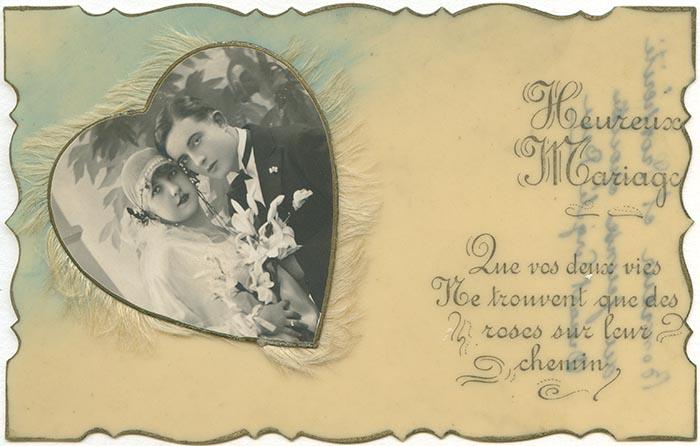 Heureux
Mariage
Que vos deux vies
Ne trouvent que des
roses sur leur
chemin